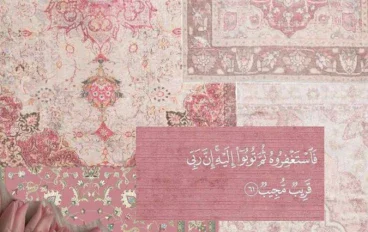 فَٱسْتَغْفِرُوهُ ثُمَّ تُوبُوٓا۟ إِلَيْهِ ۚ إِنَّ رَبِّى
قَرِيبٌ مُّجِيبٌ ﴿٦١﴾